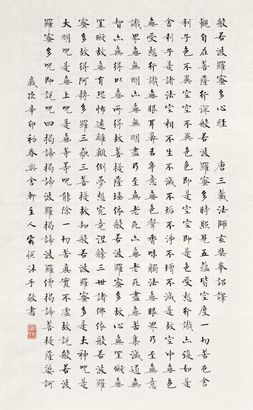 般若波羅蜜多心經 唐三藏法師玄奘奉詔譯
觀自在菩薩行深般若波羅蜜多時照見五蘊皆空度一切苦厄舍
利子色不異空空不異色色即是空空即是色受想行識亦復如是
舍利子是諸法空相不生不滅不垢不淨不增不減是故空中無色
無受想行識無眼耳鼻舌身意無色聲香味觸法無眼界乃至無意
識界無無明亦無無明盡乃至無老死亦無老死盡無苦集滅道無
智亦無得以無所得故菩提薩埵依般若波羅蜜多故心無罣礙無
罣礙故無有恐怖遠離顛倒夢想究竟涅槃三世諸佛依般若波羅
蜜多故得阿耨多羅三藐三菩提故知般若波羅蜜多是大神咒是
大明咒是無上咒是無等等咒能除一切苦真實不虛故說般若波
羅蜜多咒即說咒曰揭諦揭諦波羅揭諦波羅僧揭諦菩提薩婆訶
歲次辛卯初春 主人 敬書